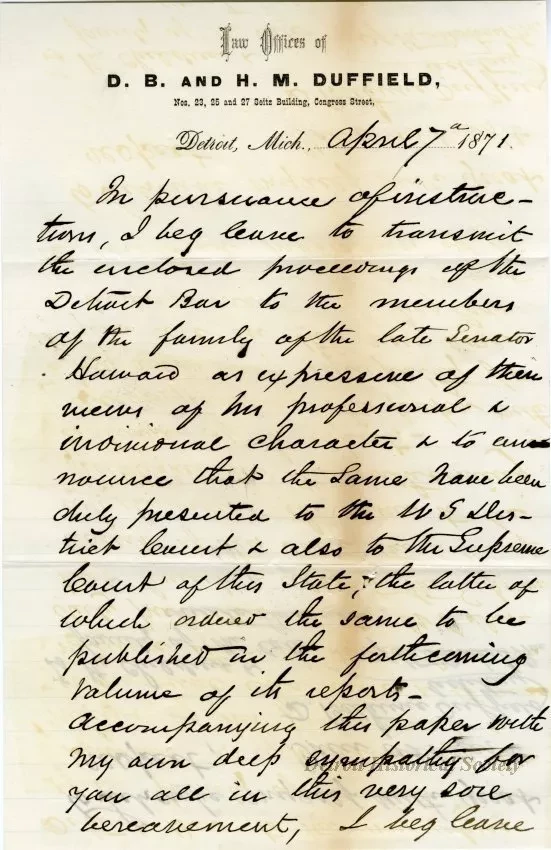 Law Offices of
D. B. AND H. M. DUFFIELD,
Nos. 23, 25 and 27 Seitz Building, Congress Street,
Detroit, Mich., April 7th 1871.
In pursuance of instruc-
tions, I beg leave to transmit
the enclosed proceedings of the
Detroit Bar to the members
of the family of the late Senator
Howard as expressive of their
views of his professional &
individual character & to an-
nounce that the same have been
duly presented to the U S Dis-
trict Court & also to the Supreme
Court of this State, the latter of
which ordered the same to be
published in the forthcoming
volume of its reports-
Accompanying this paper with
my own deep sympathy for
you all in this very sore
bereavement, I beg leave
Detroit Historical Society